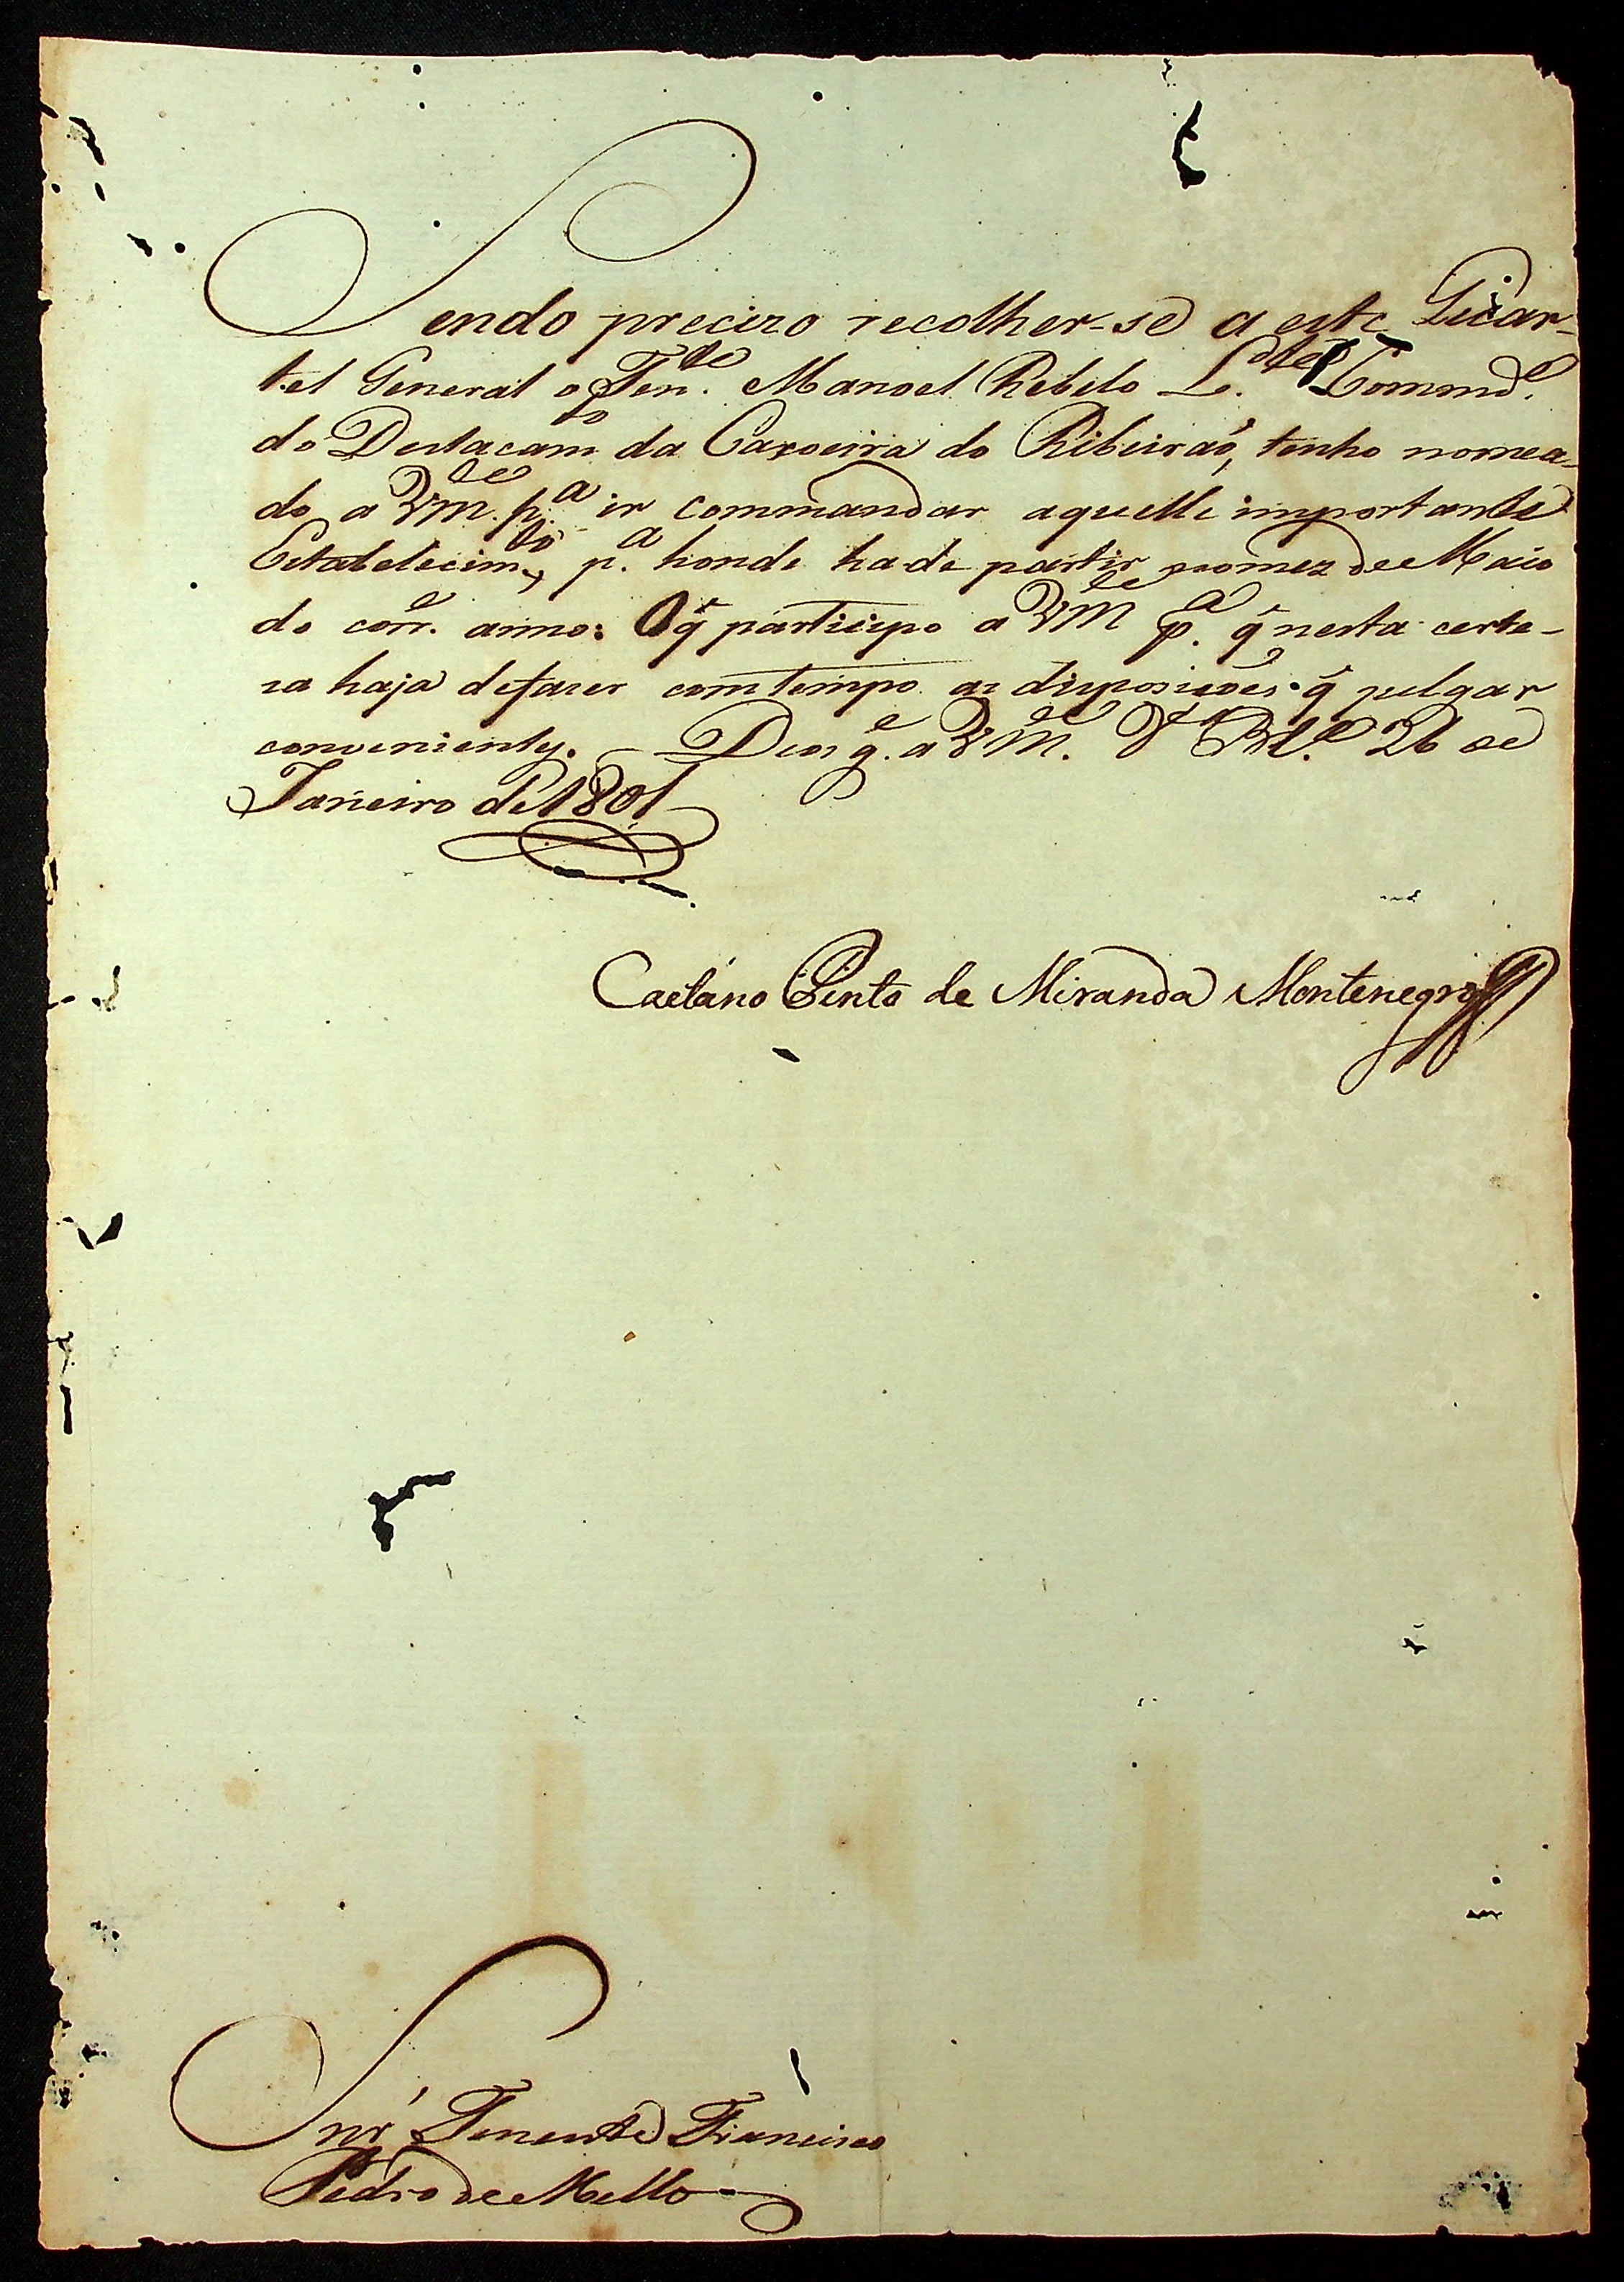 Sendo precizo recolher-se a este Quar-
tel General o Ten.te Manoel Rebelo Commd.e
do Destacam.to da Caxoeira do Ribeiraõ, tenho nomea-
do a VM.ce p.a ir commandar aquelle importante
Estabelecim.to, p.a honde ha de partir no mez de Maio
do corr.e anno: O q̃ participo a VM.ce p.a q̃ nesta certe-
za haja de fazer com tempo as dispoziçoẽs q̃ julgar
convenientes. Deos g.e a VM.ce V.a B.a 26 de
Janeiro de 1801
Caetano Pinto de Miranda Montenegro
Snr' Tenente Francisco
Pedro de Mello